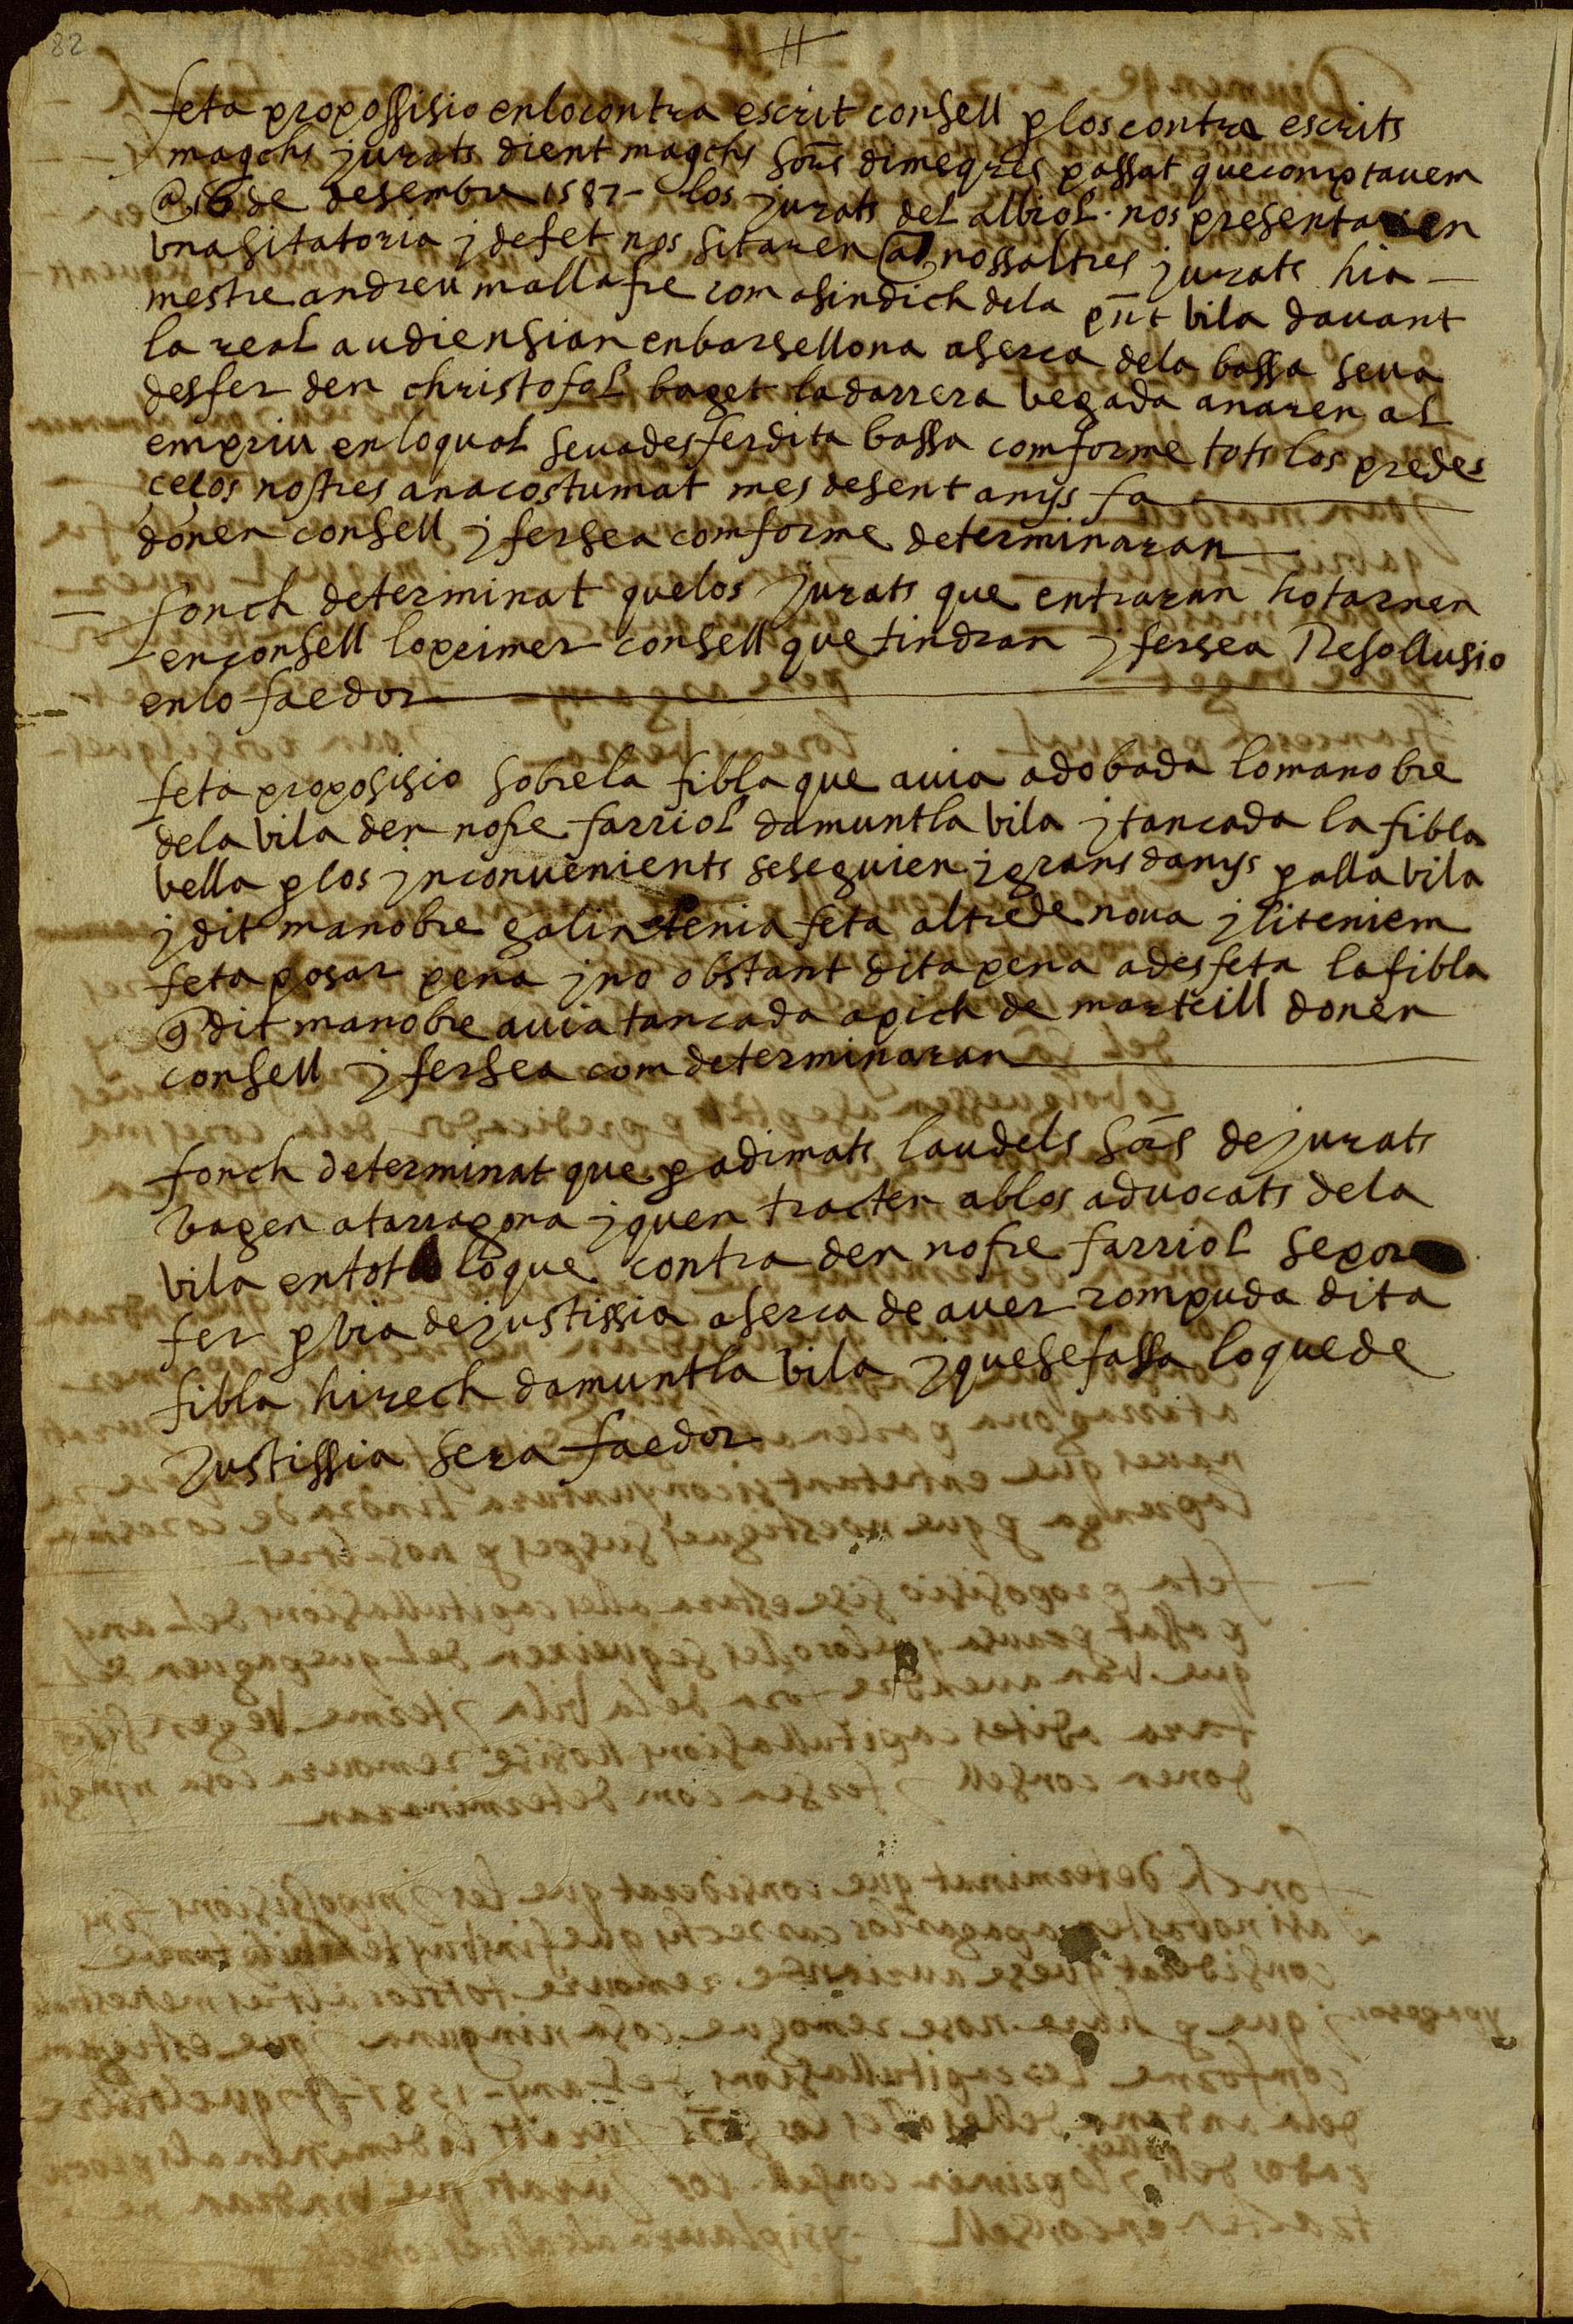 82
feta propossisio enlocontra escrit consell p los contra escrits
magchs jurats dient magchs sors dimeqres passat quecomptavem
a 16 de desembre 1587 - los jurats del albiol nos presentaren
vnasitatoria j defet nos sitaren a nossaltres jurats hia
mestre andreu mallafre com asindich dela pnt vila davant
la real audiensian enbarsellona aserca dela bassa seva
desfer den christofol baget ladarrera vegada anaren al
empriu enloqual sevadesferdita bassa comforme tots los predes
celos nostres anacostumat mes desent anys fa
donen consell j fersea comforme determinaran
fonch determinat quelos jurats que entraran hotarnen
enconsell loprimer consell que tindran j fersea Resollusio
enlo faedor
feta proposisio sobrela fibla que avia adobada lomanobre
dela vila den nofre farriol damuntla vila j tancada la fibla
vella p los jnconvenients seseguien j grans danys p alla vila
j dit manobre galin tenia feta altrede nova j liteniem
feta posar pena j no obstant dita pena adesfeta lafibla
q dit manobre avia tancada apich de martell donen
consell j fersea com determinaran
fonch determinat que p adimats laudels sors de jurats
vagen atarragona j quen tracten ablos advocats dela
vila entot loque contra den nofre farriol sepora
fer p via dejustissia aserca de aver rompuda dita
fibla hirech damuntla vila j quesefassa loquede
Justissia sera faedor